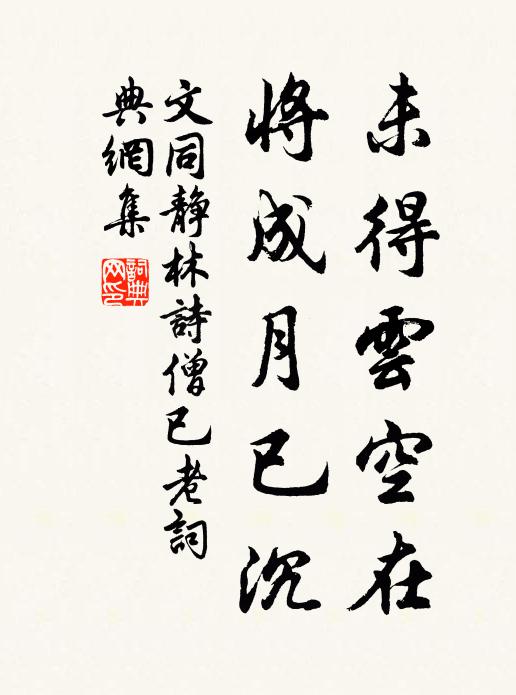 未得雲空在
將成月已沉
文同静林詩僧已老詞
典網集
詞典
网印